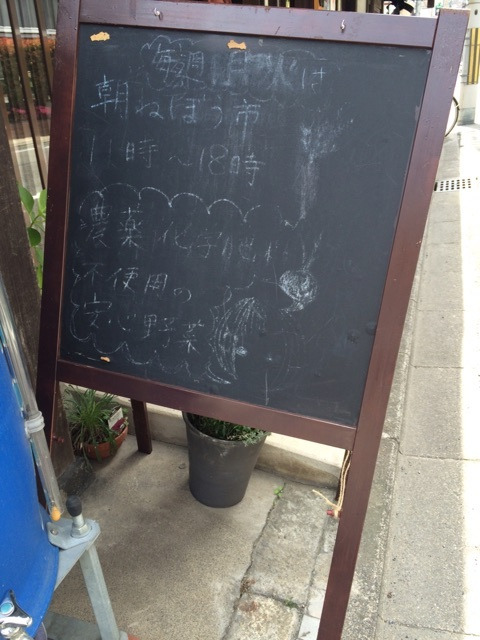 毎週日水は
朝ねぼう市
11時～18時
農薬 化学肥料
不使用の
安心野菜